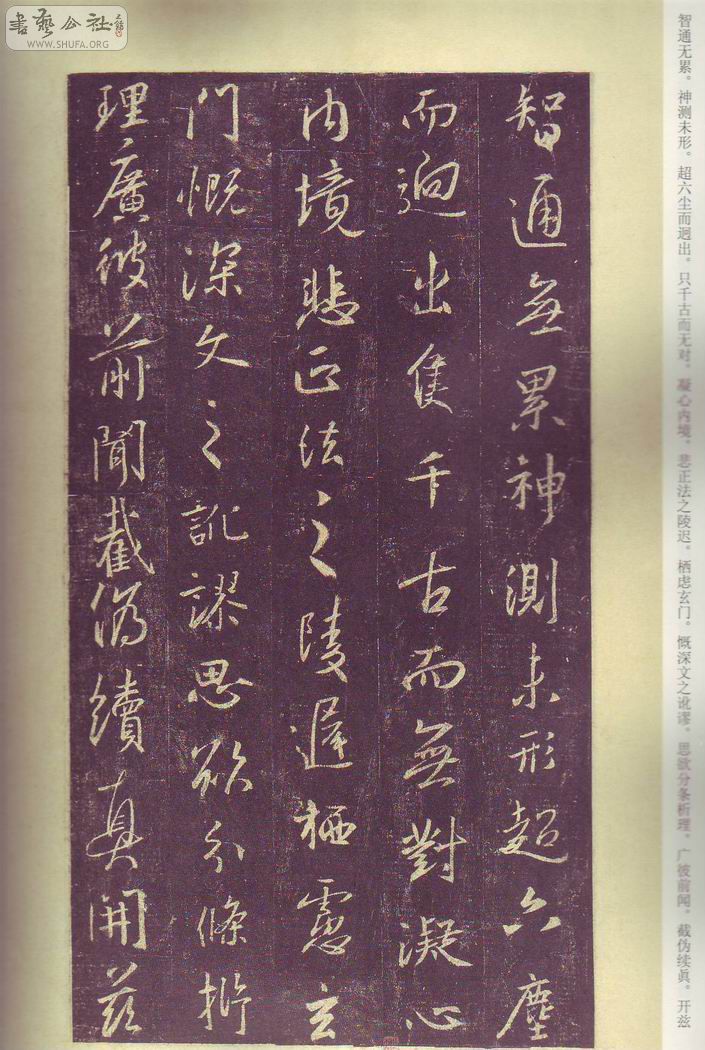 書藝公社
WWW.SHUFA.ORG
智通無累神測未形超六塵
而迥出隻千古而無對凝心
內境悲正法之陵遲栖慮玄
門慨深文之訛謬思欲分條析
理廣彼前聞截偽續真開茲
智通无累。神测未形。超六尘而迥出。只千古而无对。凝心内境。悲正法之陵迟。栖虑玄门。慨深文之讹谬。思欲分条析理。广彼前闻。截伪续真。开兹